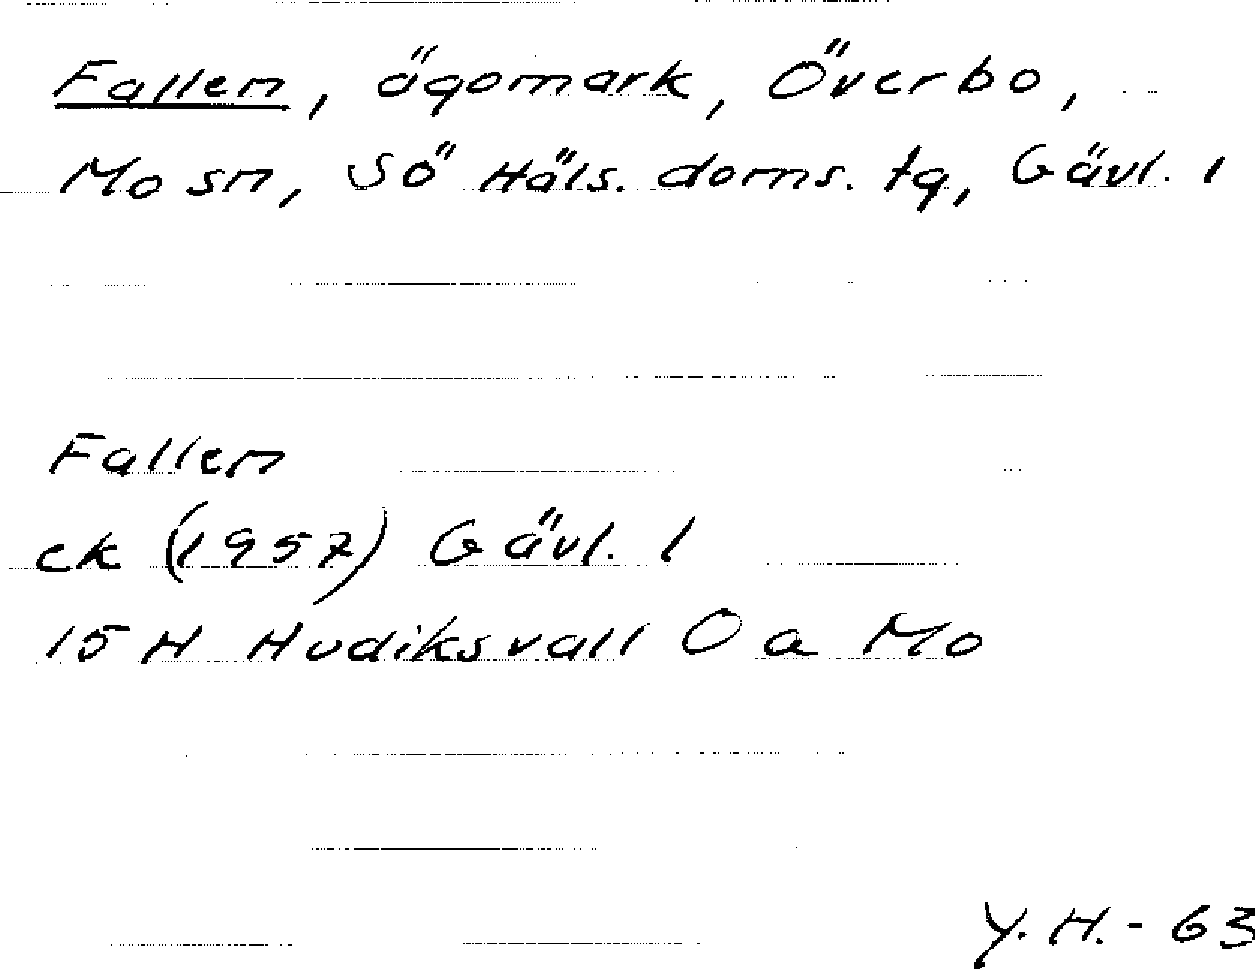 Fallen, ägomark, Överbo,
Mo sn, Sö Häls. doms. tg, Gävl. l
Fallen
ek (1957) Gävl. l
15 H Hudiksvall O a Mo
Y. H. - 63